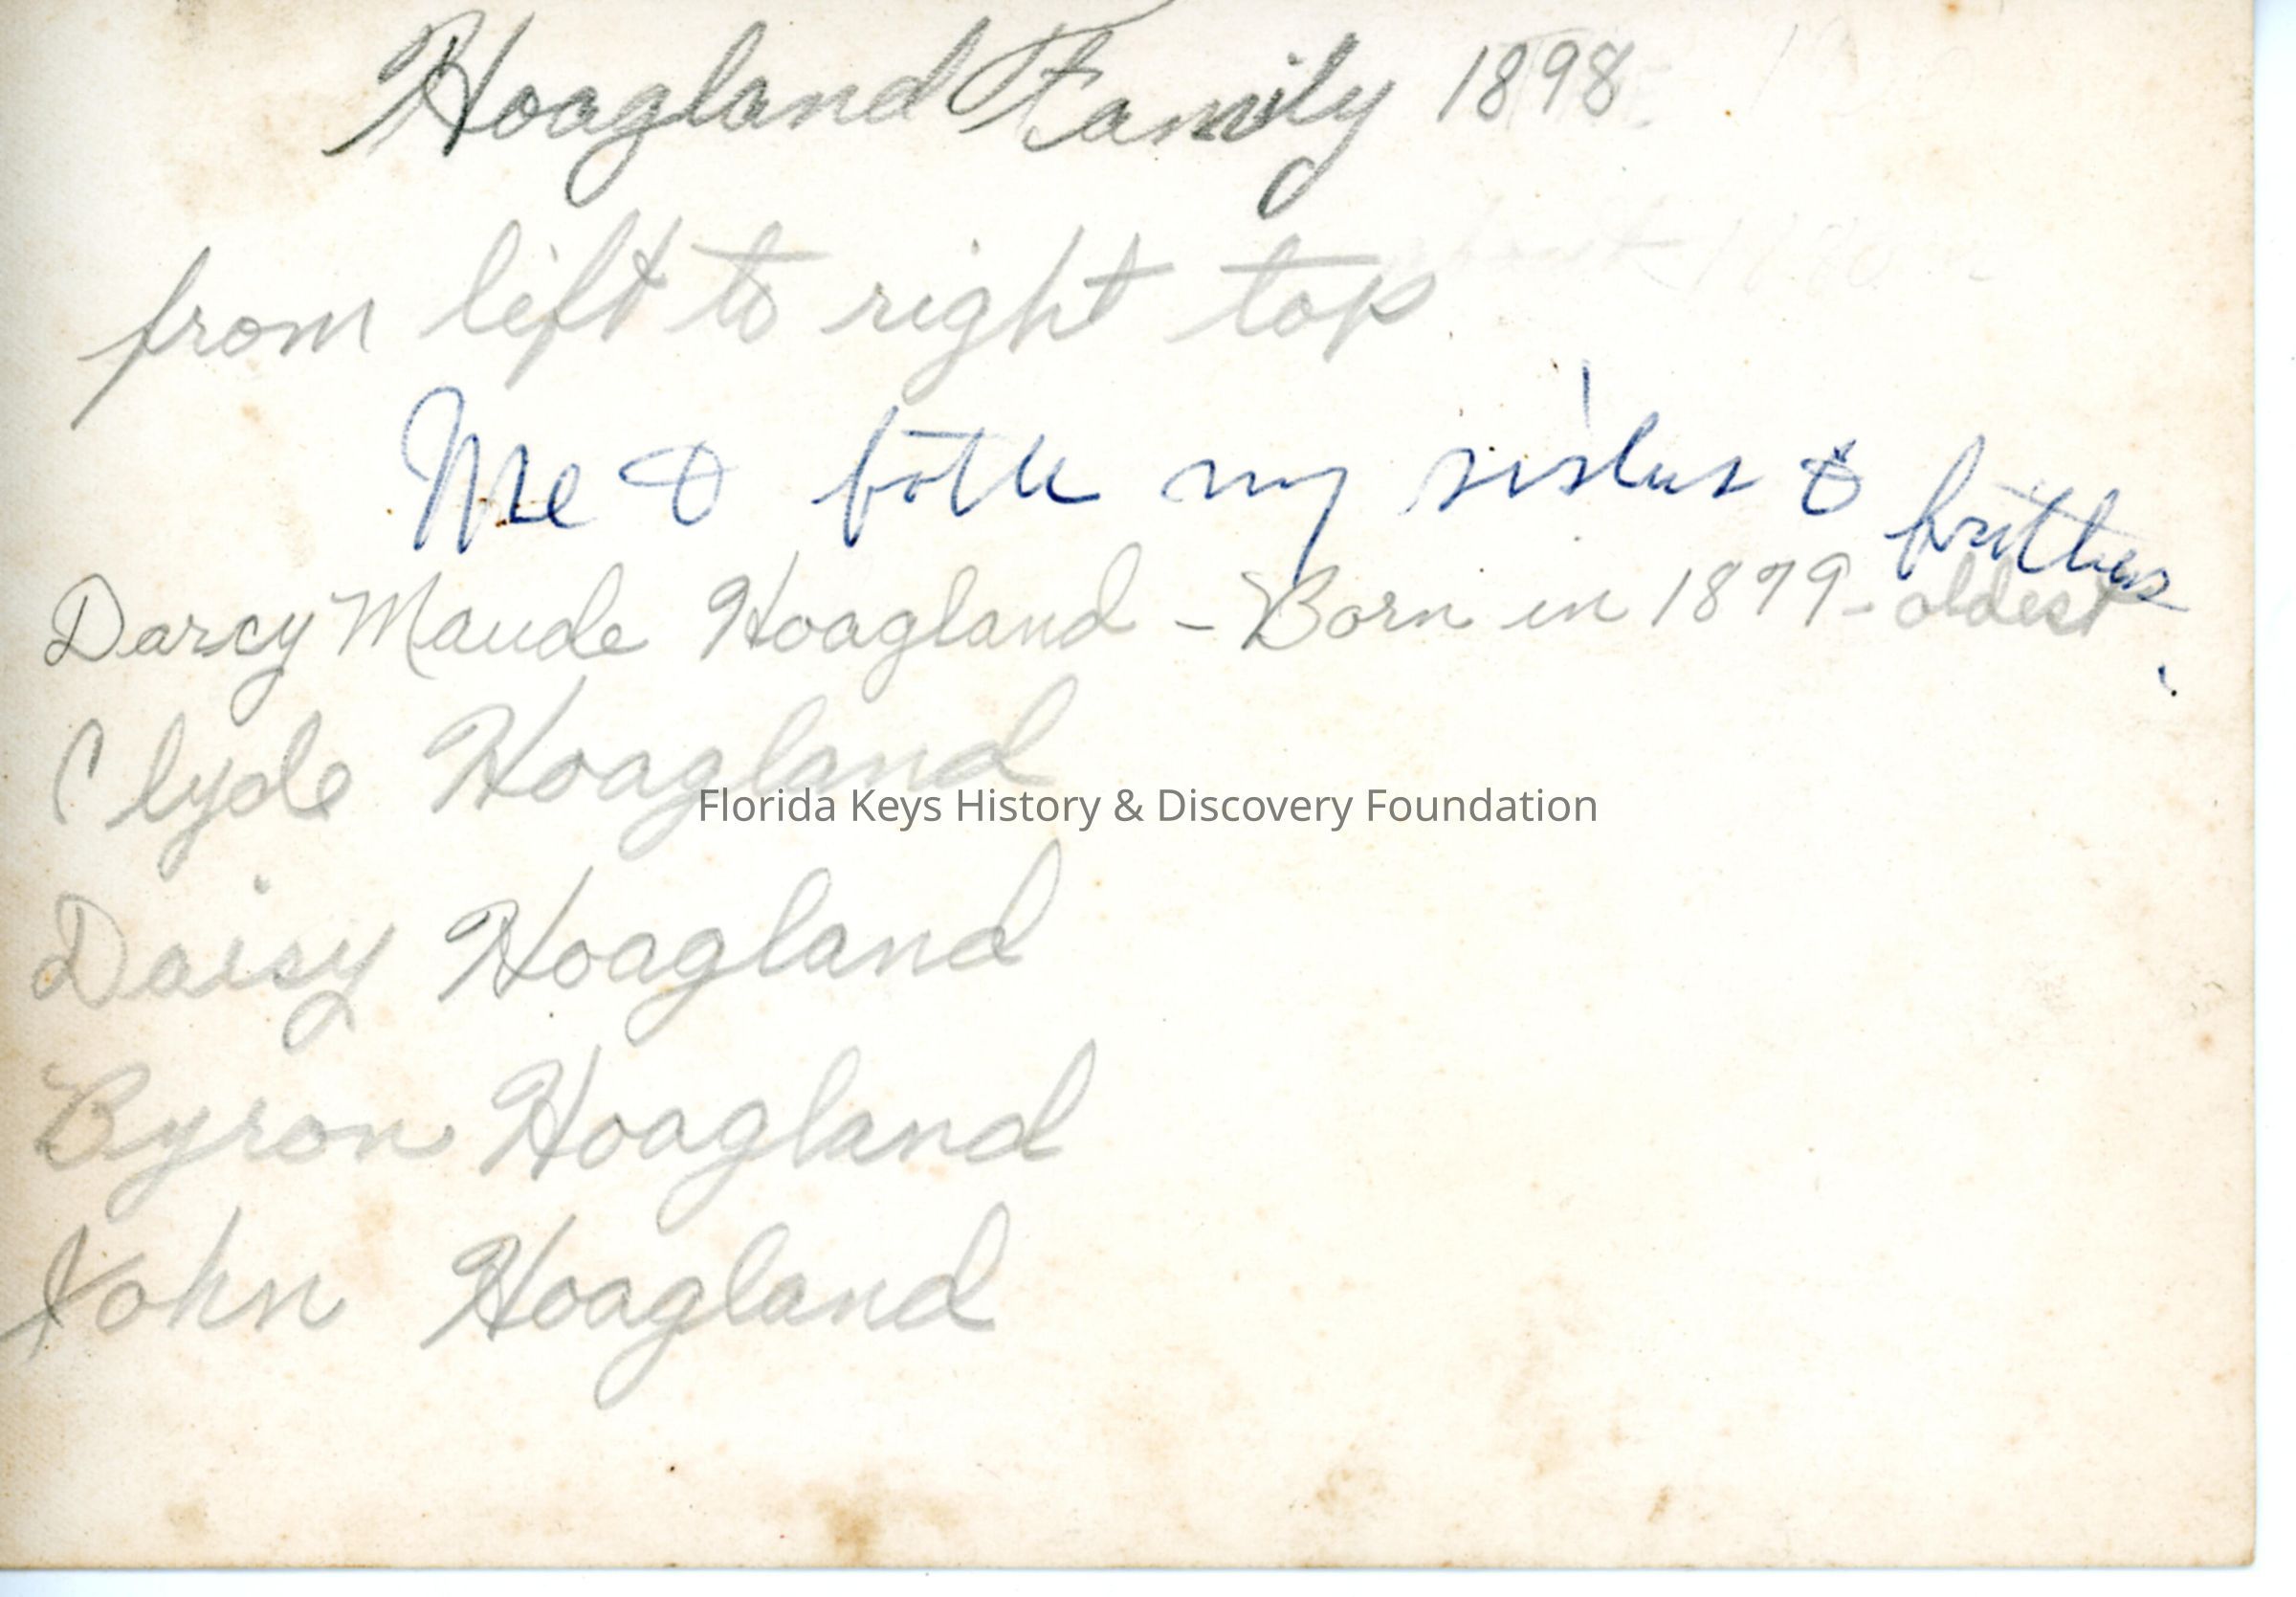 Hoagland Family 1898
from left to right top
Me & both my sisters & brothers
Darcy Maude Hoagland - Born in 1879 - oldest
Clyde Hoagland
Florida Keys History & Discovery Foundation
Daisy Hoagland
Byron Hoagland
John Hoagland